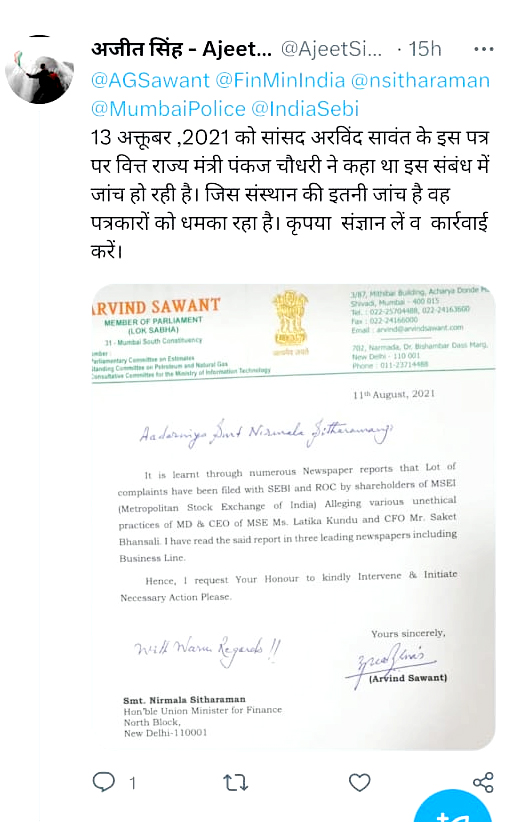 अजीत सिंह - Ajeet... @AjeetSi... · 15h ...
@AGSawant @FinMinIndia @nsitharaman
@MumbaiPolice @IndiaSebi
13 अक्तूबर ,2021 को सांसद अरविंद सावंत के इस पत्र
पर वित्त राज्य मंत्री पंकज चौधरी ने कहा था इस संबंध में
जांच हो रही है। जिस संस्थान की इतनी जांच है वह
पत्रकारों को धमका रहा है। कृपया संज्ञान लें व कार्रवाई
करें।
ARVIND SAWANT
MEMBER OF PARLIAMENT
(LOK SABHA)
31 - Mumbai South Constituency
Parliamentary Committee on Estimates
Standing Committee on Petroleum and Natural Gas
Consultative Committee for the Ministry of Information Technology
सत्यमेव जयते
3/87, Mithibai Building, Acharya Donde
Shivadi, Mumbai - 400 015
Tel. : 022-25704488, 022-24163600
Fax : 022-24166000
Email : arvind@arvindsawant.com
702, Narmada, Dr. Bishambar Dass Marg,
New Delhi - 110 001
Phone : 011-23714488
11th August, 2021
Aadarniya Smt Nirmala Sitharamanji
It is learnt through numerous Newspaper reports that Lot of
complaints have been filed with SEBI and ROC by shareholders of MSEI
(Metropolitan Stock Exchange of India) Alleging various unethical
practices of MD & CEO of MSE Ms. Latika Kundu and CFO Mr. Saket
Bhansali. I have read the said report in three leading newspapers including
Business Line.
Hence, I request Your Honour to kindly Intervene & Initiate
Necessary Action Please.
With Warm Regards !!
Yours sincerely,
(Arvind Sawant)
Smt. Nirmala Sitharaman
Hon'ble Union Minister for Finance
North Block,
New Delhi-110001
1